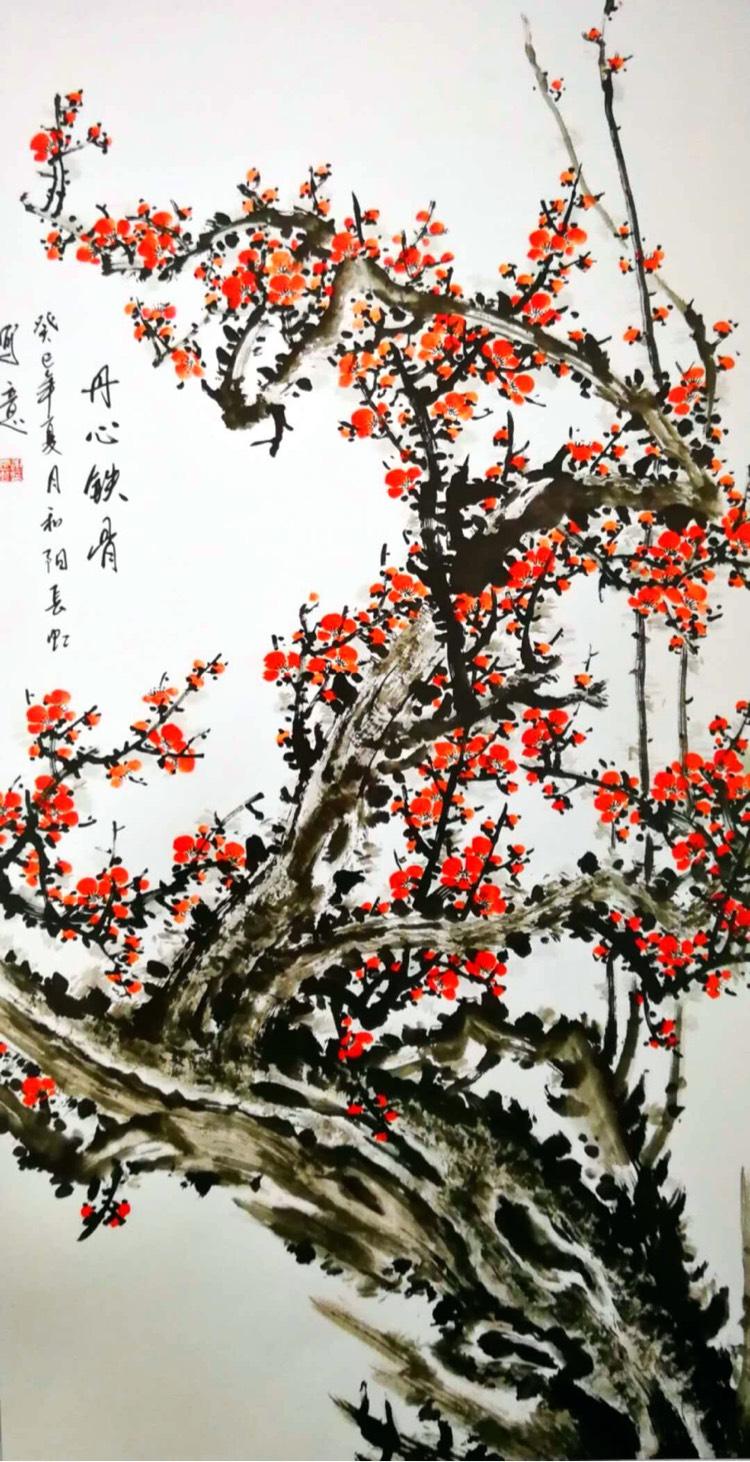 丹心铁骨
癸巳年夏月和阳长虹
写意